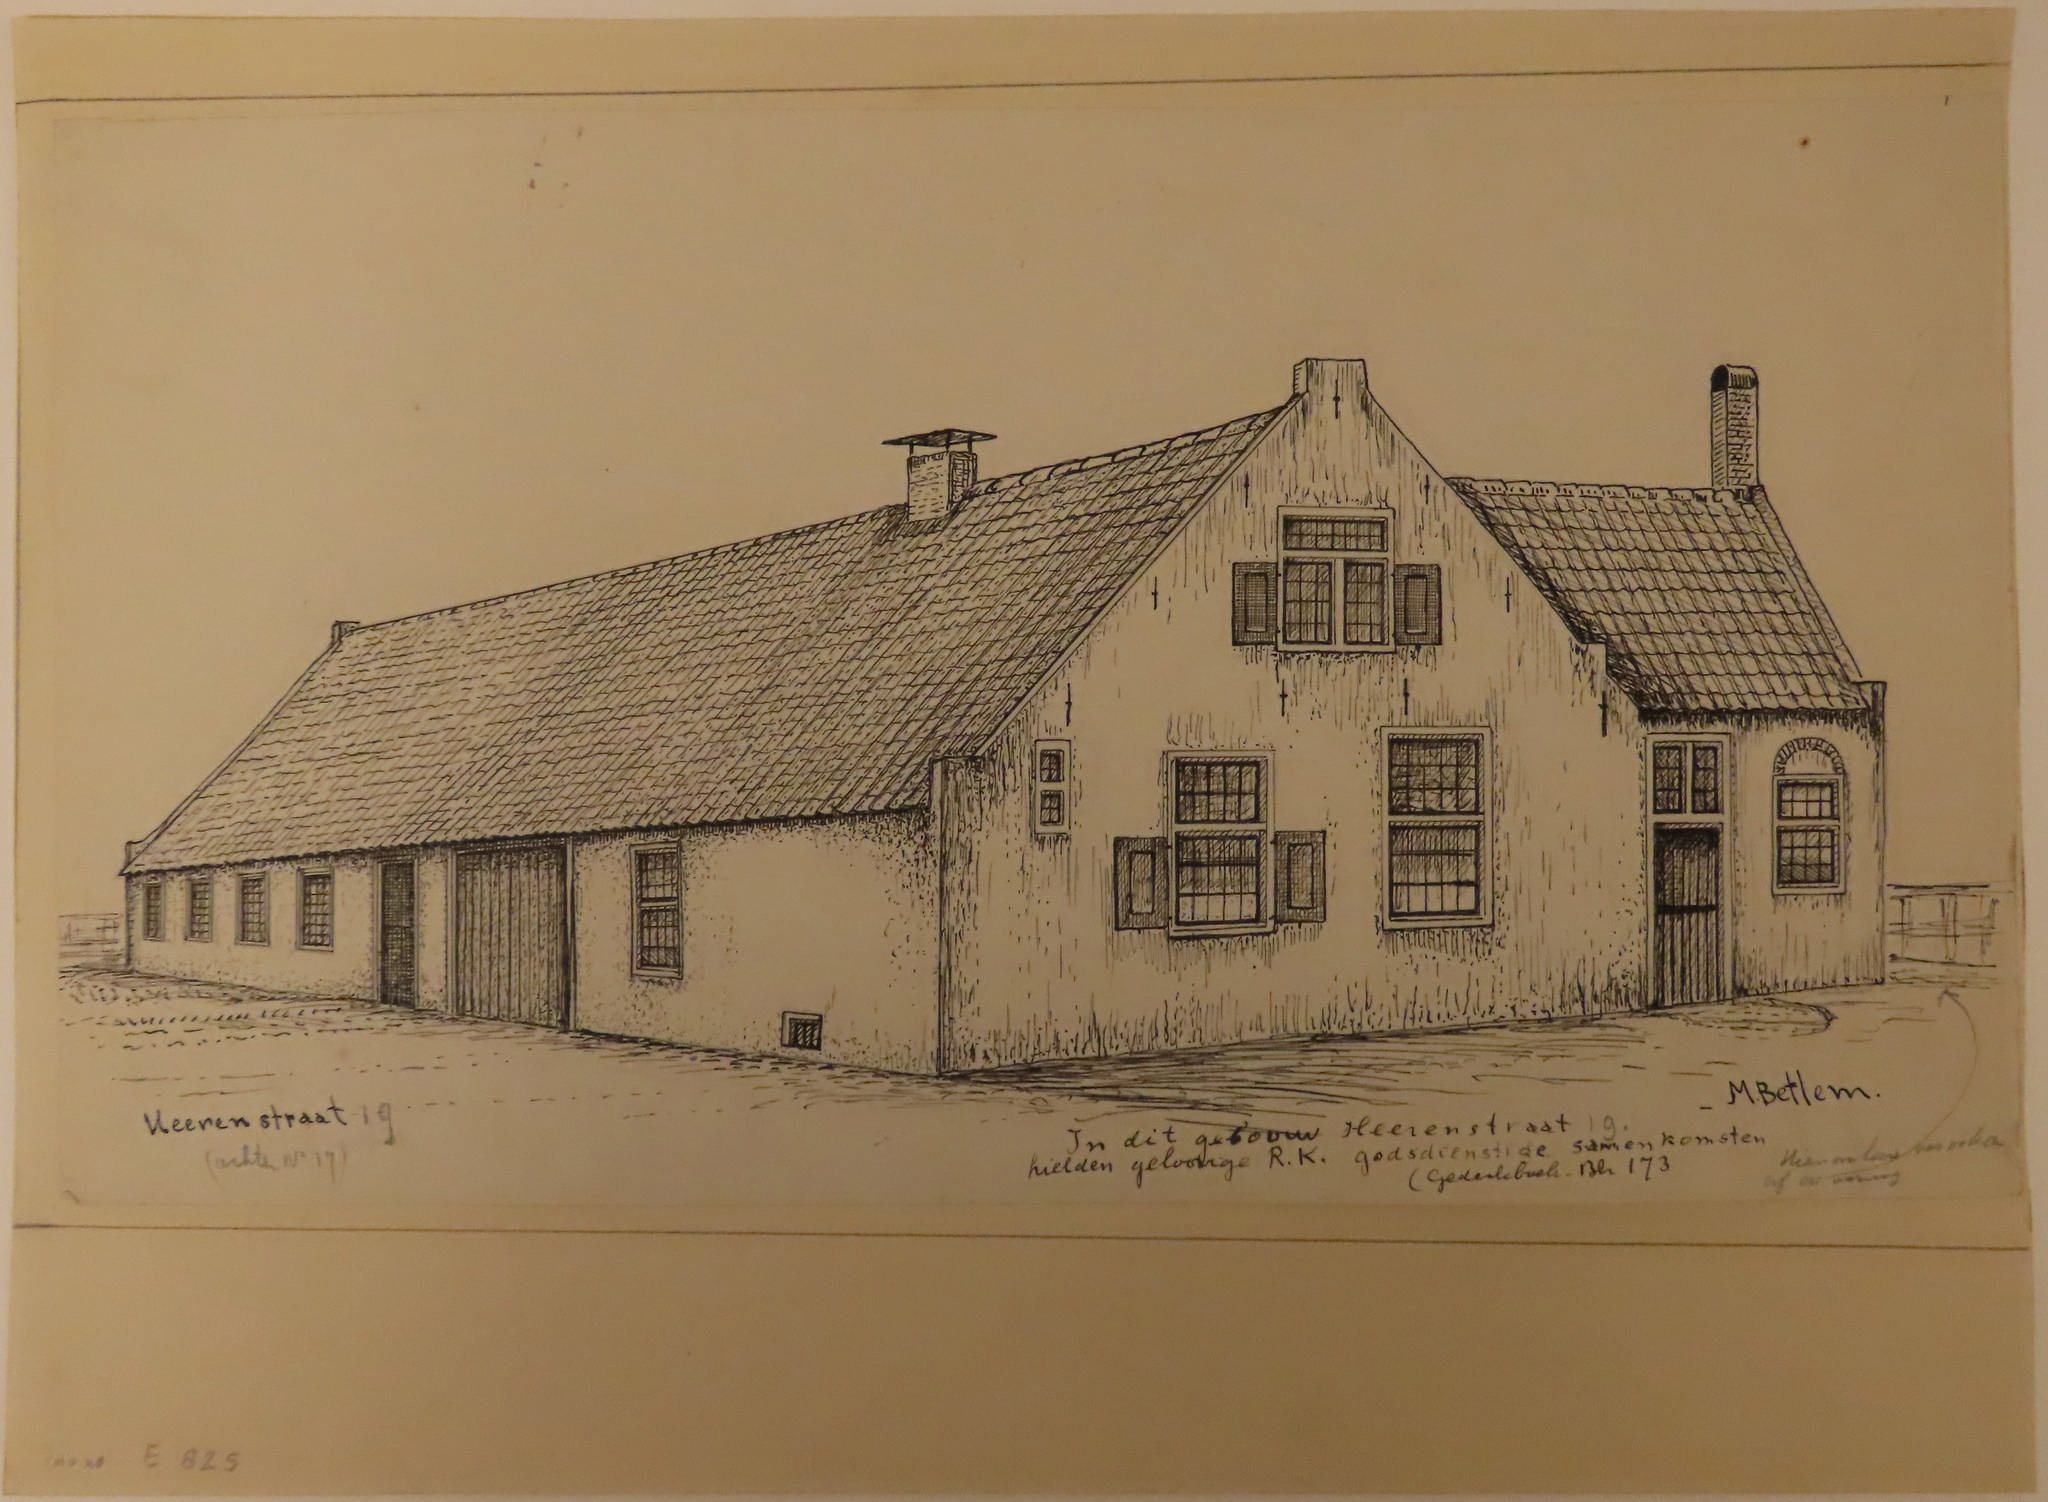 M. Betlem.
Heerenstraat 19
(achter No 17)
In dit gebouw Heerenstraat 19.
hielden geloovige R.K. godsdienstige samenkomsten
(Gedenkboek. Blz 173
E 825